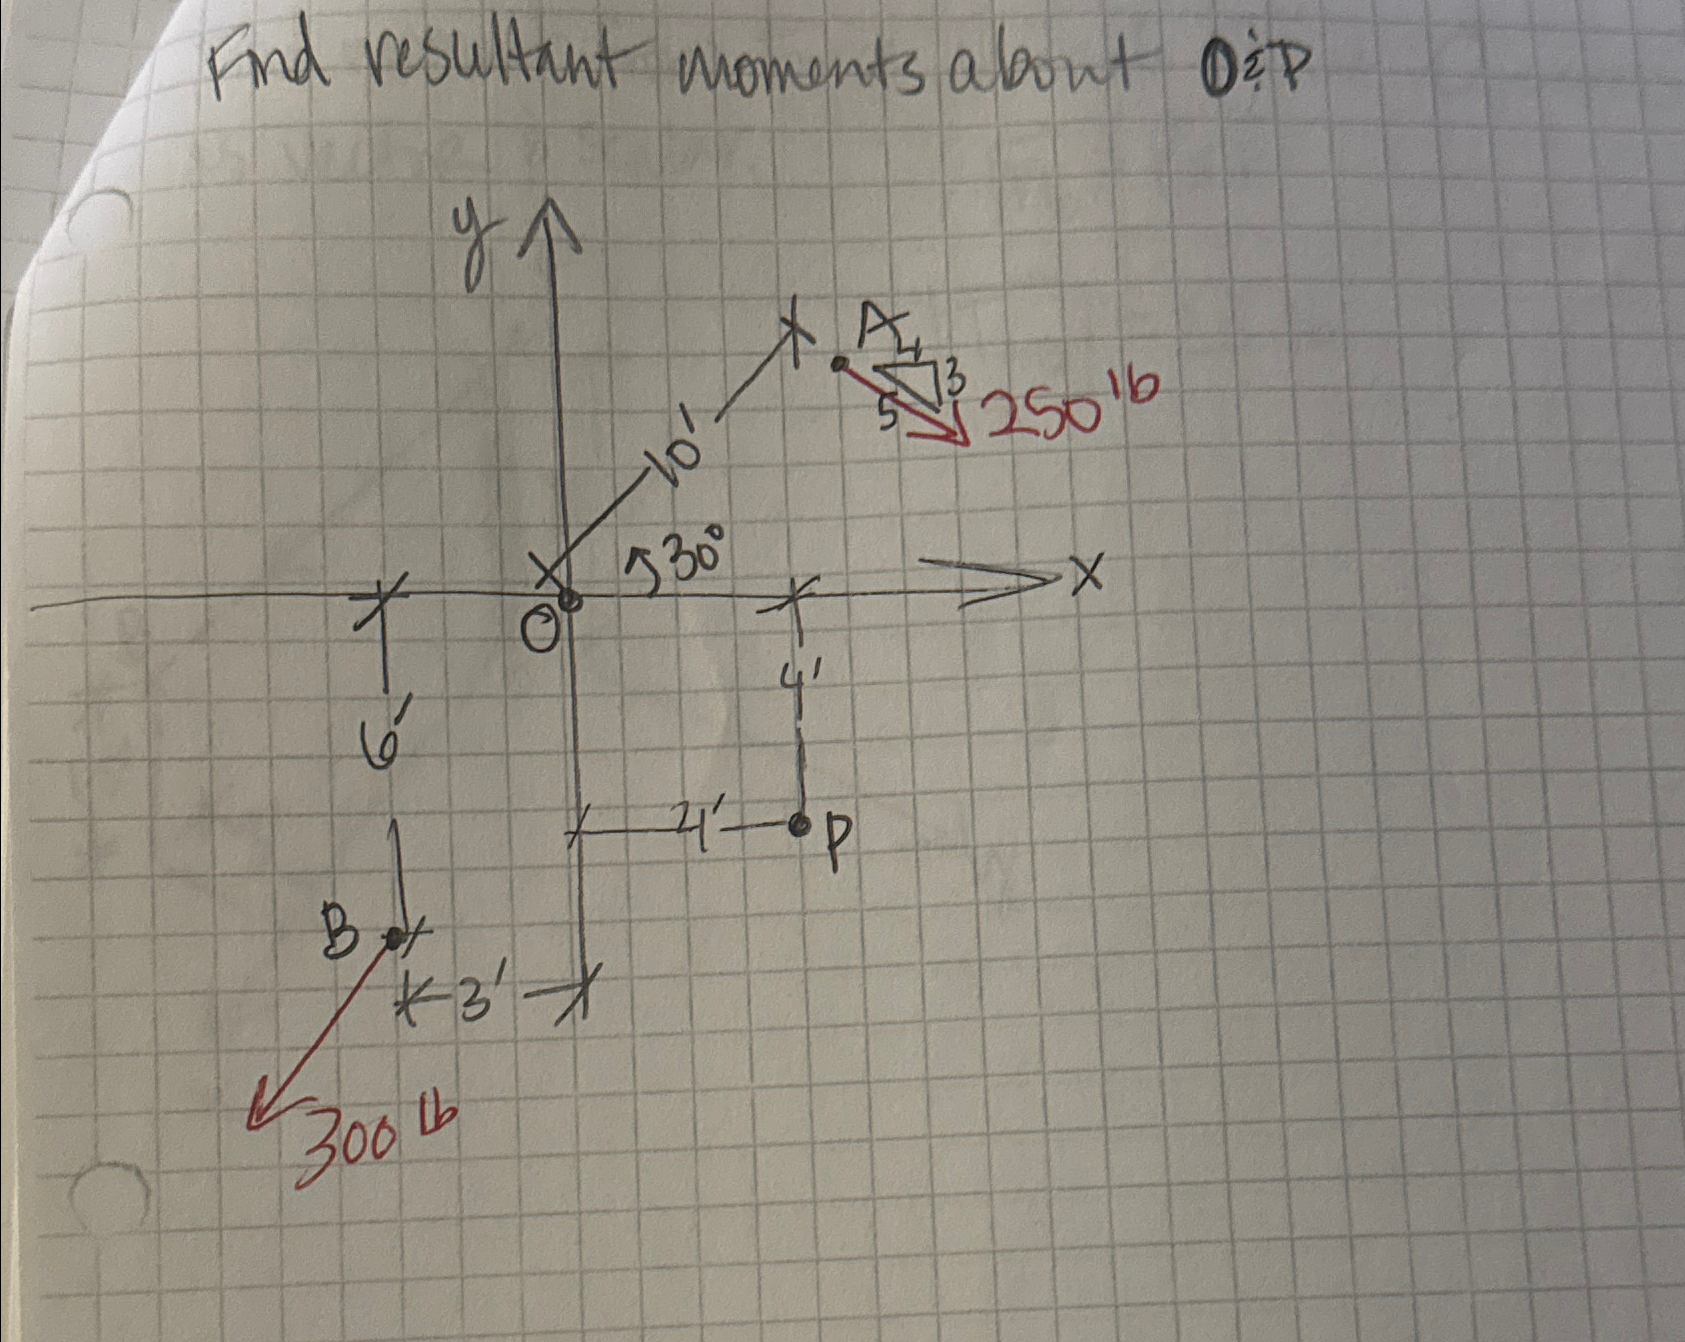 Find resultant moments about O & P
y
A
4
3
5
250 lb
10'
30°
X
O
4'
6'
4'
P
B
3'
300 lb